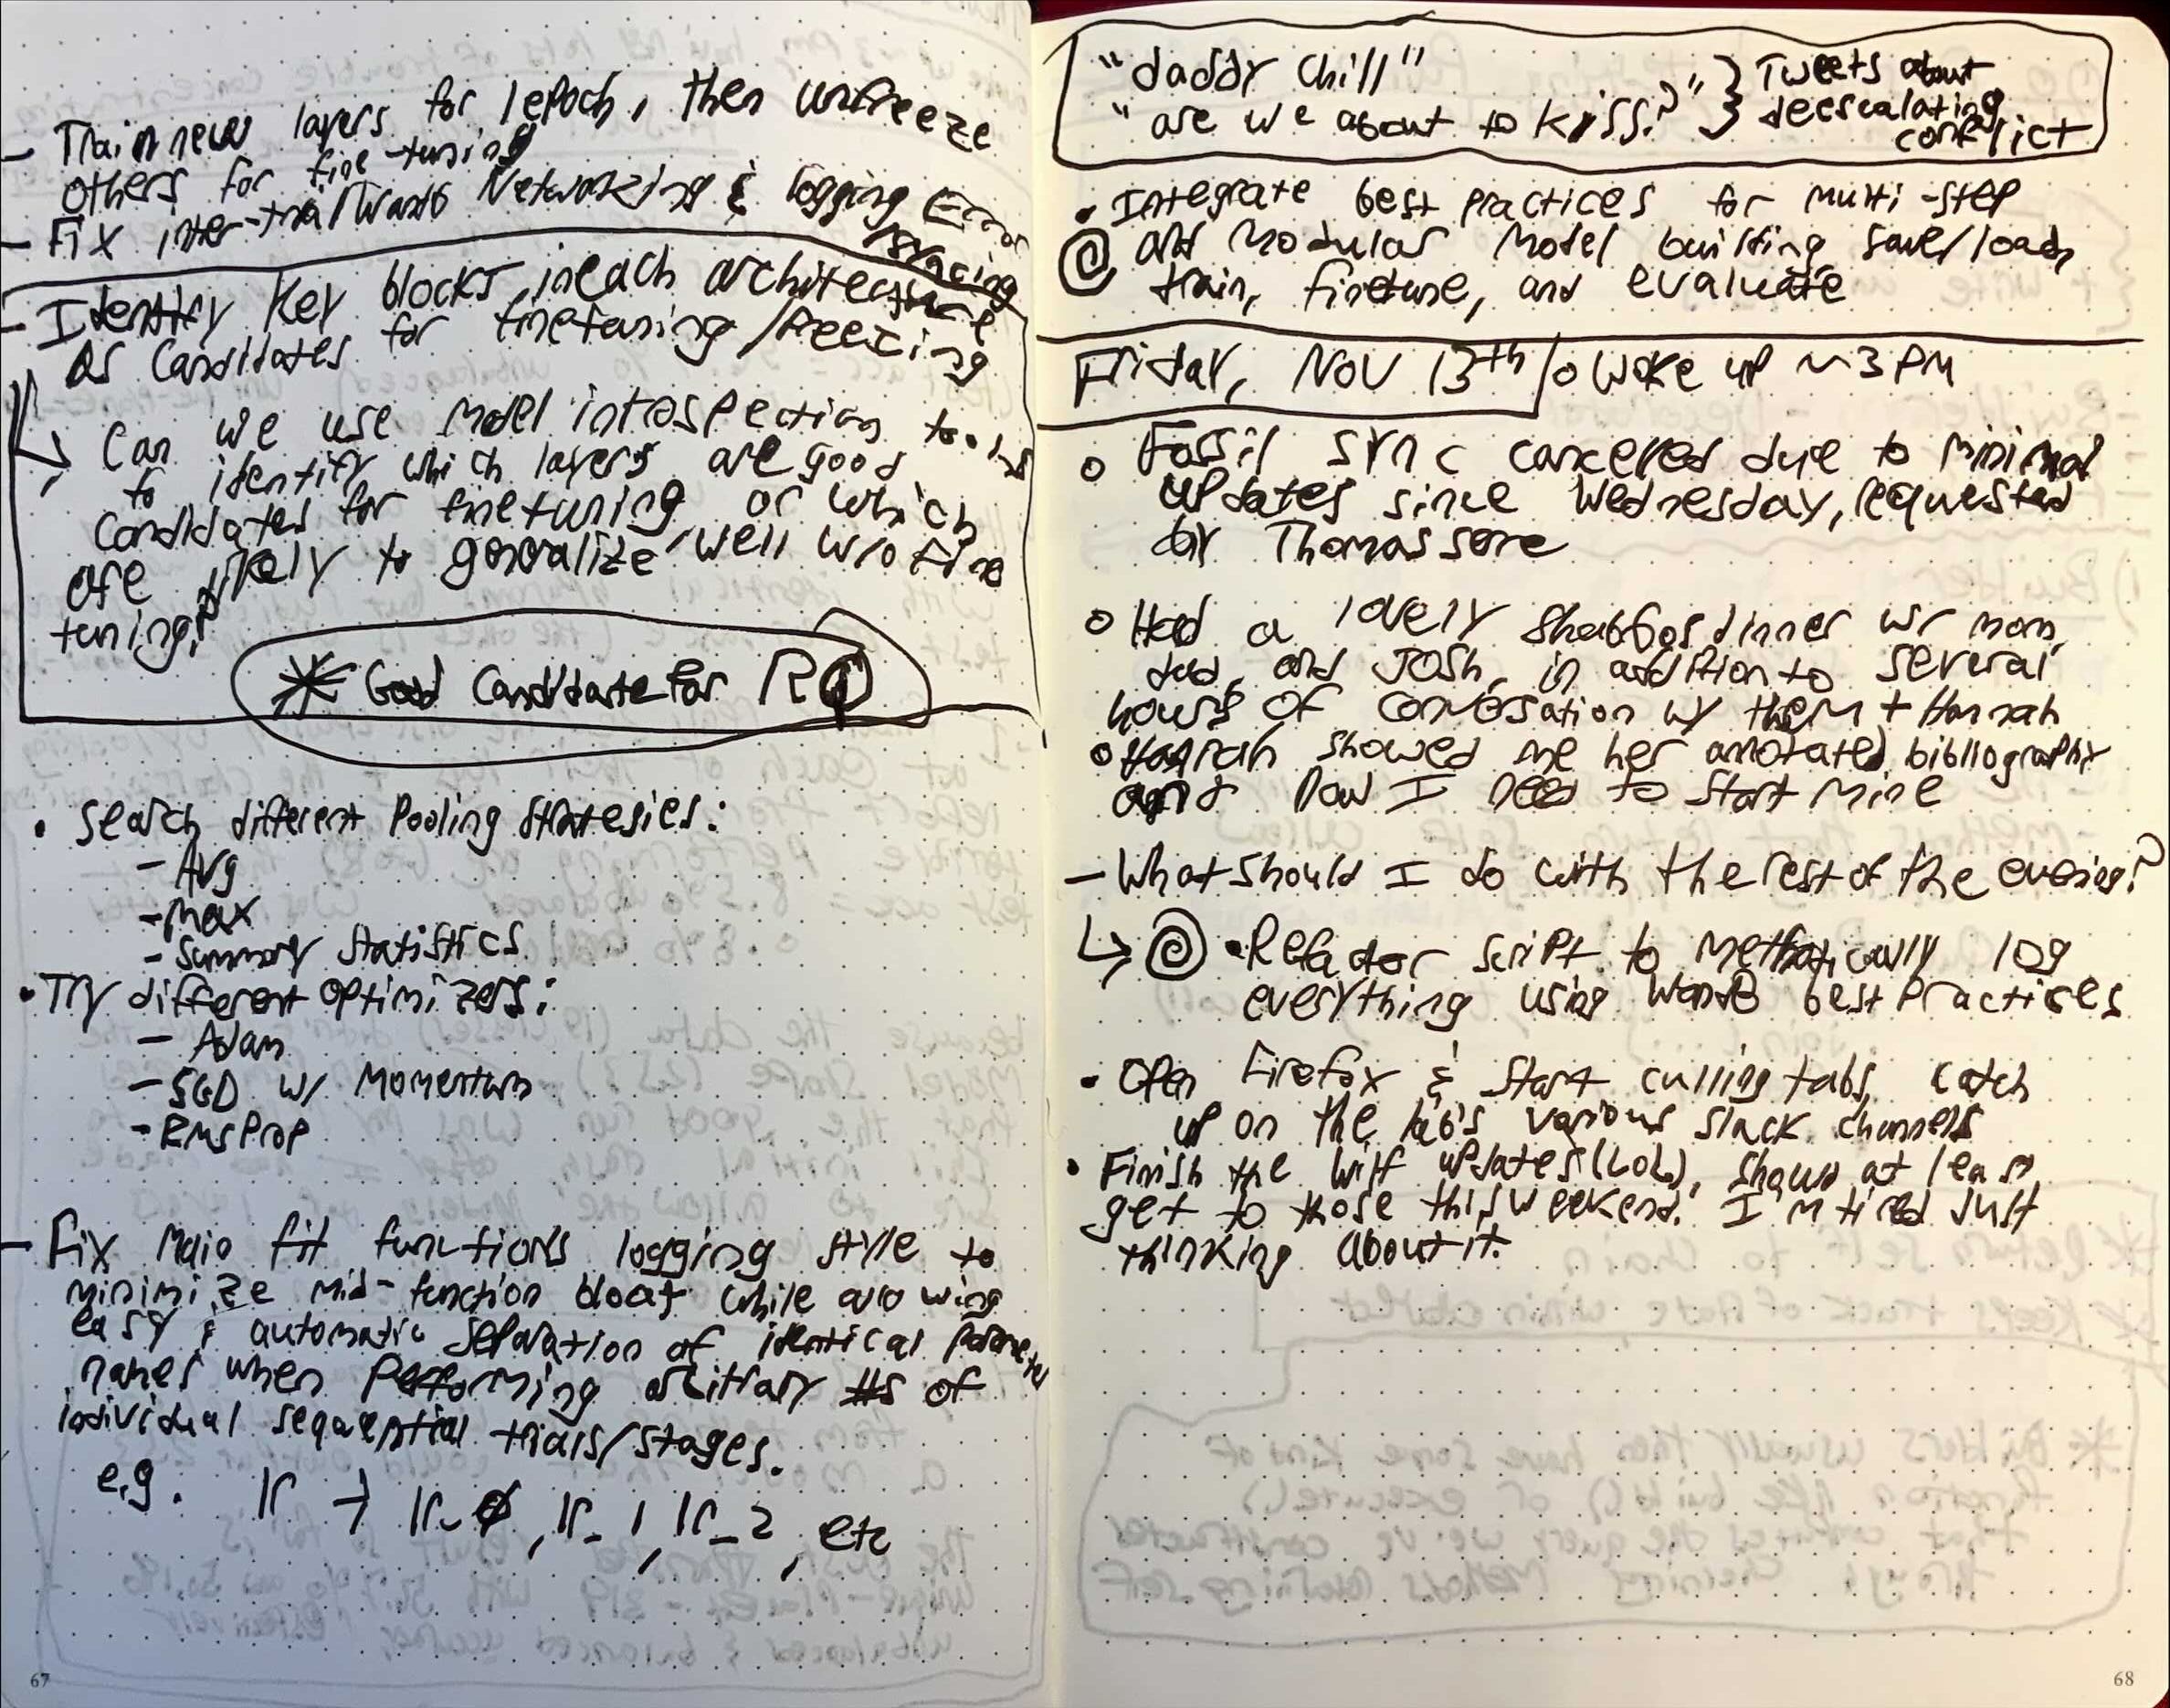 - Train new layers for 1 epoch, then unfreeze
others for fine-tuning
- Fix inter-trial WandB Networking & logging Error
syncing
- Identify Key blocks in each architecture
as Candidates for finetuning/freezing
↳ Can we use model introspection tools
to identify which layers are good
candidates for finetuning or which
are likely to generalize well w/o fine
tuning?
* Good Candidate for RQ
• Search different Pooling Strategies:
- Avg
- Max
- Summary Statistics
• Try different Optimizers:
- Adam
- SGD w/ Momentum
- RMSProp
- Fix Main fit functions logging style to
minimize mid-function bloat while allowing
easy & automatic separation of identical parameter
names when Performing arbitrary #s of
individual sequential trials/stages.
e.g. lr → lr_0, lr_1, lr_2, etc
67
"daddy chill" } Tweets about
"are we about to kiss?" deescalating
conflict
• Integrate best practices for multi-step
and modular model building, save/load,
train, finetune, and evaluate
Friday, Nov 13th o Woke up ~3 PM
o Fossil sync cancelled due to minimal
updates since Wednesday, requested
by Thomas Serre
o Had a lovely Shabbos dinner w/ mom,
dad, and Josh, in addition to several
hours of conversation w/ them + Hannah
o Hannah showed me her annotated bibliography
and now I need to start mine
- What should I do with the rest of the evening?
↳ • Refactor script to methodically log
everything using WandB best Practices
• Open Firefox & start culling tabs, catch
up on the lab's various slack channels
• Finish the wilf updates (LOL), should at least
get to those this weekend. I'm tired just
thinking about it.
68